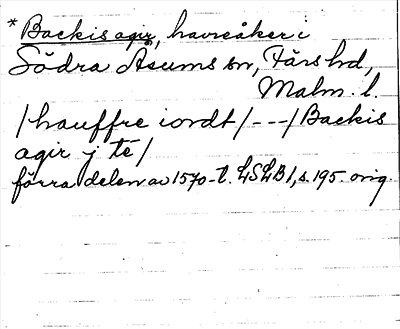 * Backis agir, havreåker i
Södra Åsums sn, Färs hd,
Malm. l.
/hauffre iordt/---/Backis
agir j té/
förra delen av 1570-t. LSLB1, s. 195. orig.